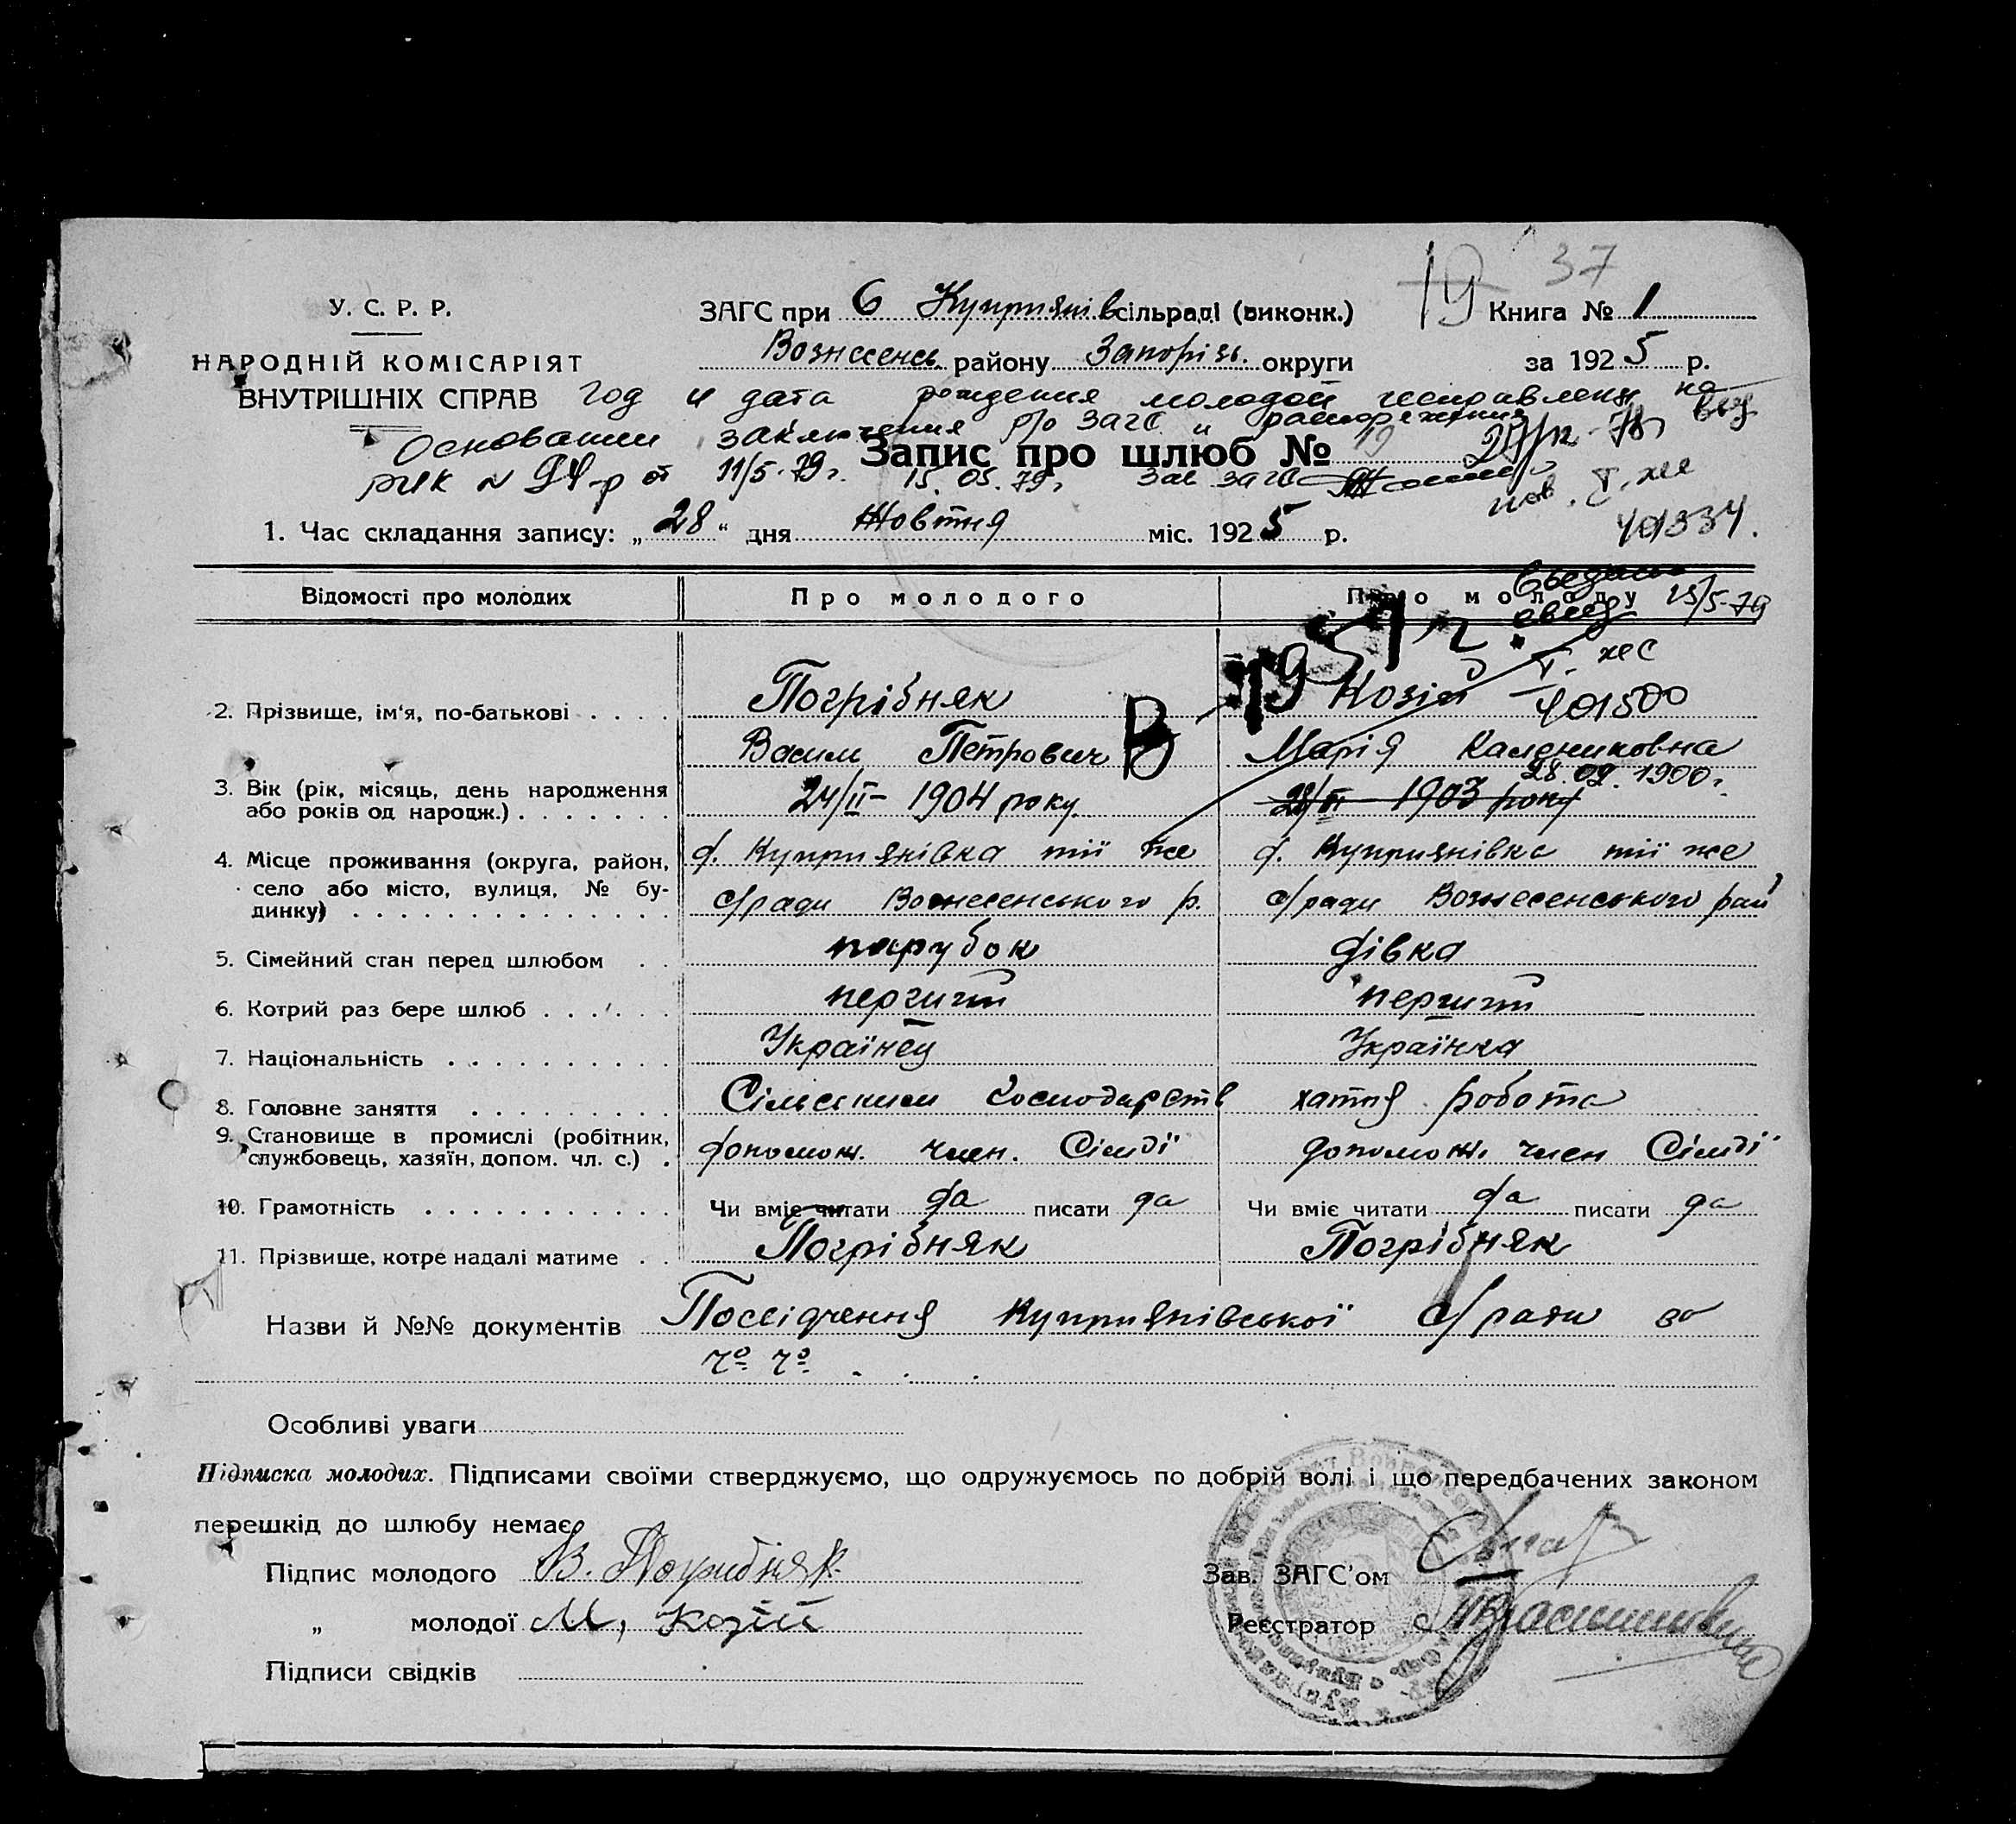 19 37
У. С. Р. Р.
ЗАГС при 6 Куприянів сільраді (виконк.) Книга № 1
НАРОДНІЙ КОМІСАРІЯТ
Вознесенсь. району Запоріз. округи за 1925 р.
ВНУТРІШНІХ СПРАВ год и дата рождения молодой исправлены на
основании заключения р/о загс и распоряжения
Запис про шлюб № 19
рик № 94-р от 11/5-79г. 15.05.79г. Зав загс
1. Час складання запису: „28“ дня Жовтня міс. 1925 р.
401334.
Відомості про молодих Про молодого Про молоду 25/5-79
2. Прізвище, ім'я, по-батькові Погрібняк Козій 401500
Васил Петрович Марія Калениковна
28.02.1900г.
3. Вік (рік, місяць, день народження 24/II- 1904 року 28/II- 1903 року
або років од народж.)
4. Місце проживання (округа, район, д. Куприянівка тії же д. Куприянівка тії же
село або місто, вулиця, № бу- с/ради Вознесенського р. с/ради Вознесенського рай
динку)
5. Сімейний стан перед шлюбом парубок дівка
6. Котрий раз бере шлюб перший перший
7. Національність Українец Українка
8. Головне заняття Сільським Господарств хатня робота
9. Становище в промислі (робітник, допомож. член. Сімї допомож. член Сімї
службовець, хазяїн, допом. чл. с.)
10. Грамотність Чи вміє читати да писати да Чи вміє читати да писати да
11. Прізвище, котре надалі матиме Погрібняк Погрібняк
Назви й №№ документів Посвідчення Куприянівської с/ради
Особливі уваги
Підписка молодих. Підписами своїми стверджуємо, що одружуємось по добрій волі і що передбачених законом
перешкід до шлюбу немає.
Підпис молодого В. Погрибняк
Зав. ЗАГС'ом
„ молодої М, Козій
Реєстратор
Підписи свідків